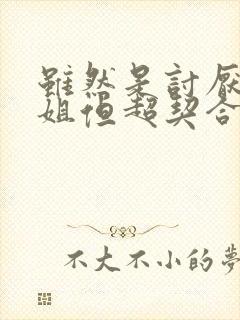 雖然是討厭
姐但超契合
不大不小的夢